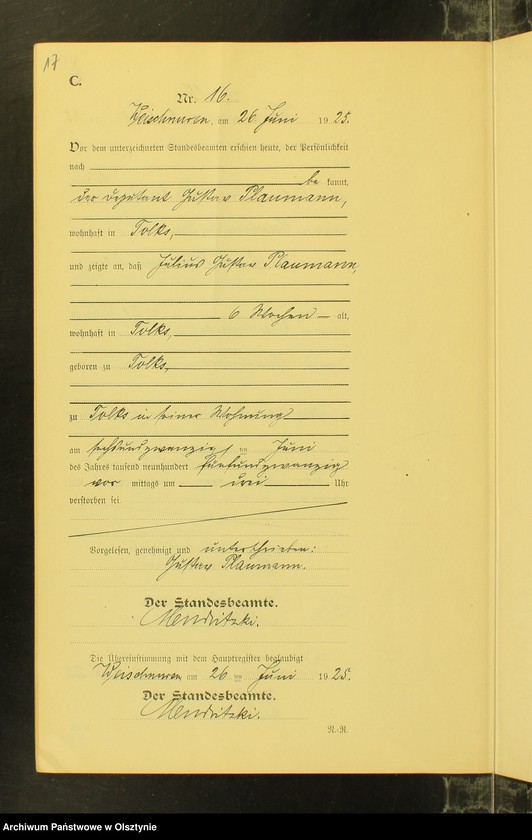 17
C.
Nr. 16.
Weischnuren, am 26 Juni 1925.
Vor dem unterzeichneten Standesbeamten erschien heute, der Persönlichkeit
nach
be kannt,
der Deputant Gustav Plaumann,
wohnhaft in Tolks,
und zeigte an, daß Julius Gustav Plaumann,
6 Wochen alt,
wohnhaft in Tolks,
geboren zu Tolks,
zu Tolks in seiner Wohnung
am sechsundzwanzigsten Juni
des Jahres tausend neunhundert fünfundzwanzig
vor mittags um drei Uhr
verstorben sei.
Vorgelesen, genehmigt und unterschrieben:
Gustav Plaumann.
Der Standesbeamte.
Mendritzki.
Die Übereinstimmung mit dem Hauptregister beglaubigt
Weischnuren am 26 ten Juni 1925.
Der Standesbeamte.
Mendritzki.
R.-R.
Archiwum Państwowe w Olsztynie